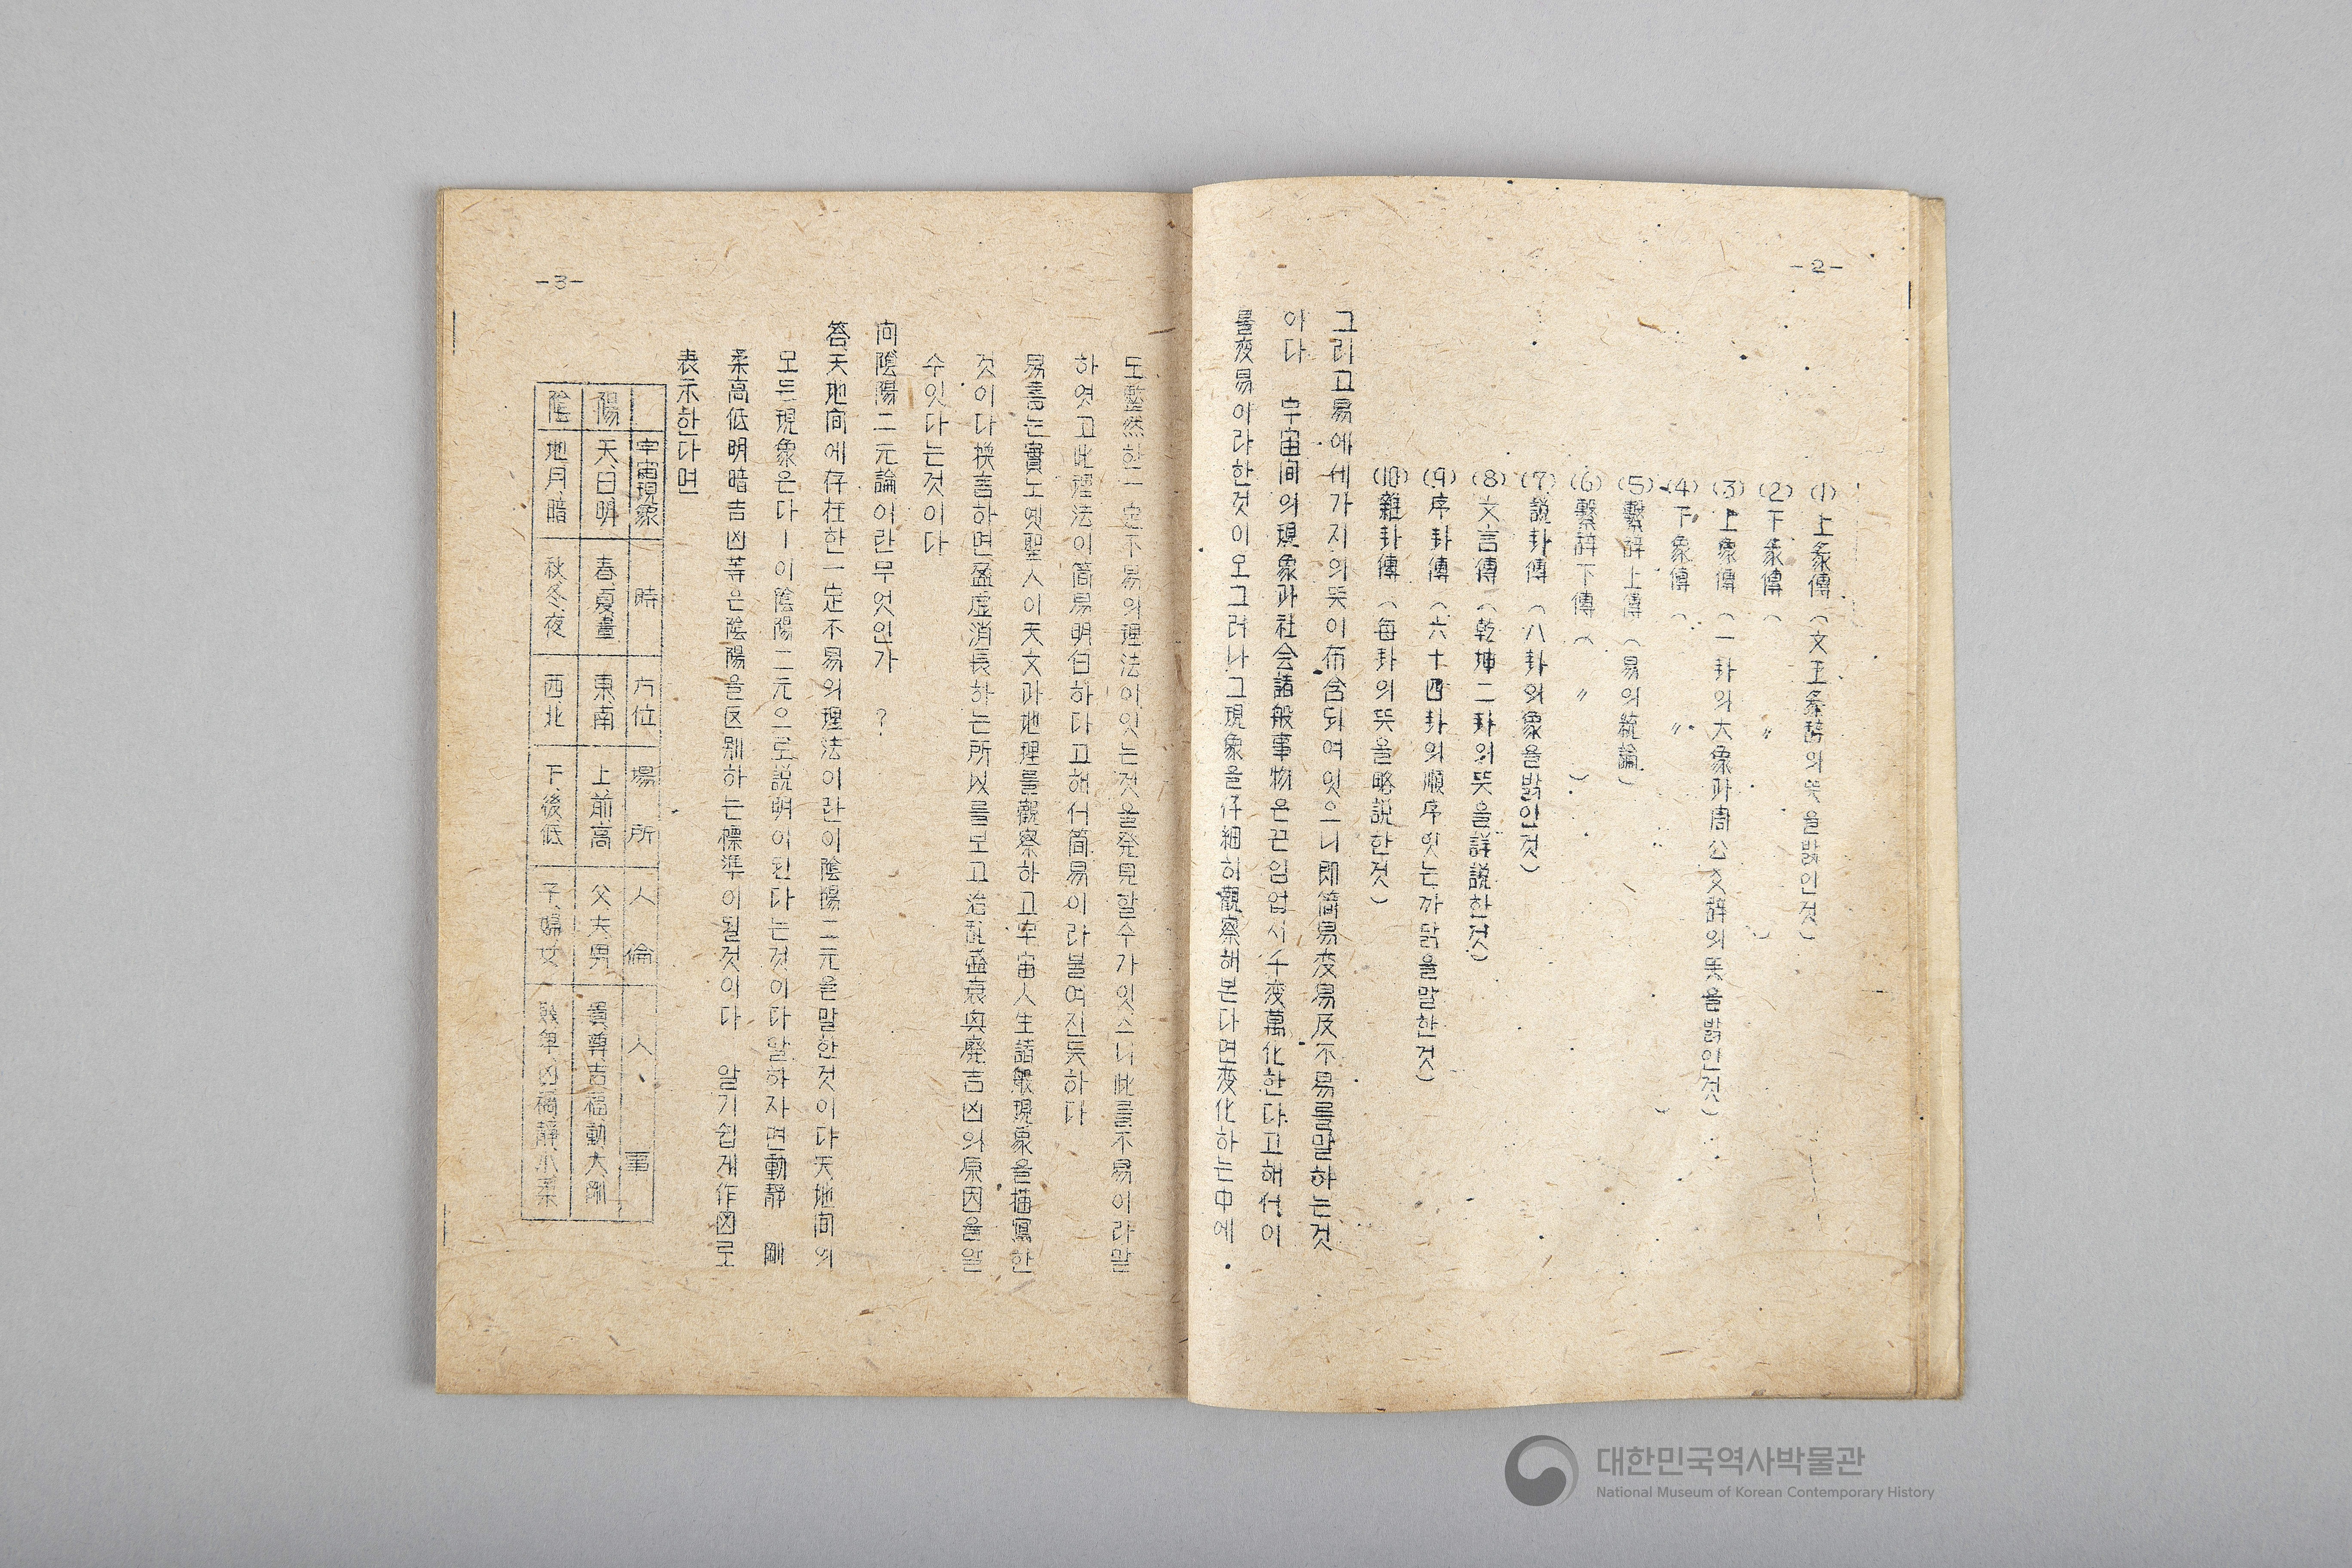 -2-
(1) 上彖傳 (文王彖辭의 뜻을밝인것)
(2) 下彖傳 ( 〃 )
(3) 上象傳 (一卦의大象과周公爻辞의뜻을밝인것)
(4) 下象傳 ( 〃 )
(5) 繫辞上傳 (易의統論)
(6) 繫辞下傳 ( 〃 )
(7) 説卦傳 (八卦의象을밝인것)
(8) 文言傳 (乾坤二卦의뜻을詳説한것)
(9) 序卦傳 (六十四卦의順序잇는까닭을말한것)
(10) 雜卦傳 (每卦의뜻을略説한것)
그리고易에세가지의뜻이布含되여잇으니即簡易変易反不易를말하는것
이다 宇宙间의現象과社会諸般事物은끈임업시千変萬化한다고해서이
를変易이라한것이오그러나그現象을仔細히觀察해본다면変化하는中에
-3-
도整然한一定不易의理法이잇는것을発見할수가잇스니此를不易이라말
하엿고此理法이簡易明白하다고해서簡易이라불여진듯하다
易書는實노옛聖人이天文과地理를觀察하고宇宙人生諸般現象을描寫한
것이다換言하면盈虛消長하는所以를보고治乱盛衰興廢吉凶의原因을알
수잇다는것이다
问 陰陽二元論이란무엇인가 ?
答、天地间에存在한一定不易의理法이란이陰陽二元을말한것이다天地间의
모든現象은다ㅣ이陰陽二元으로説明이된다는것이다말하자면動静 剛
柔高低明暗吉凶等은陰陽을区别하는標準이될것이다 알기쉽게作図로
表示한다면
宇宙現象 時 方位 場所 人倫 人事
陽 天、日明 春、夏晝 東南 上、前高 父、夫男 貴尊、吉福、動大剛
陰 地月、暗 秋冬夜 西北 下、後低 子、婦女 賤卑、凶禍静小柔
대한민국역사박물관
National Museum of Korean Contemporary History